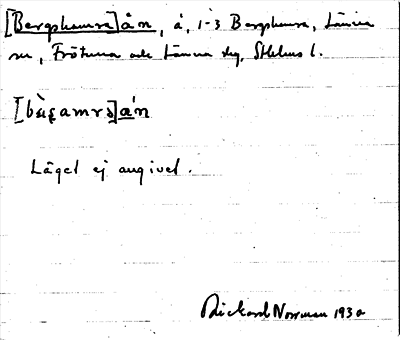 [Bergshamra]ån, å, 1-3 Bergshamra, Länna
sn, Frötuna och Länna skg, Sthlms l.
[bæ̀ʂamrɔ]å'n
Läget ej angivet.
Rickard Norrman 1930